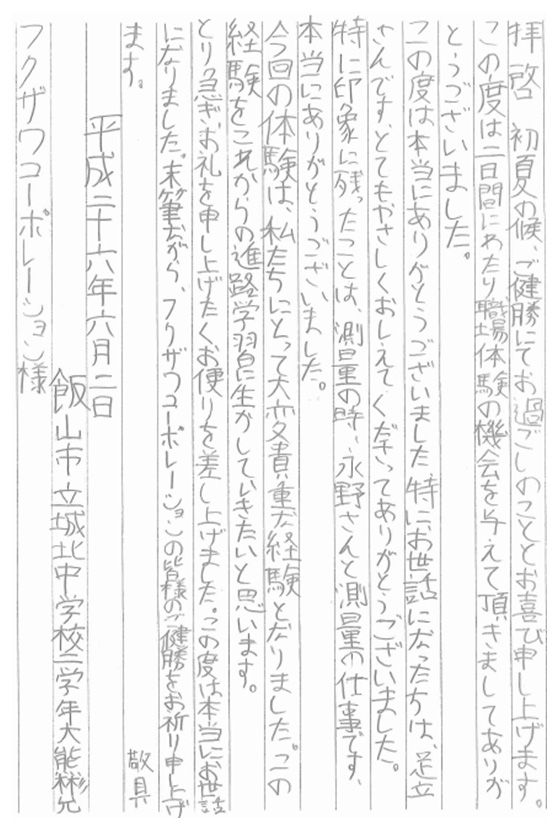 拝啓 初夏の候、ご健勝にてお過ごしのこととお喜び申し上げます。
この度は二日間にわたり、職場体験の機会を与えて頂きましてありが
とうございました。
この度は本当にありがとうございました。特にお世話になった方は、足立
さんです。とてもやさしくおしえてくださってありがとうございました。
特に印象に残ったことは、測量の時、永野さんと測量の仕事です、
本当にありがとうございました。
今回の体験は、私たちにとって大変貴重な経験となりました。この
経験をこれからの進路学習に生かしていきたいと思います。
とり急ぎ、お礼を申し上げたくお便りを差し上げました。この度は本当にお世話
になりました。末筆ながら、フクザワコーポレーションの皆様のご健勝をお祈り申し上げ
ます。 敬具
平成二十六年六月二日
飯山市立城北中学校二学年大能彬允
フクザワコーポレーション様